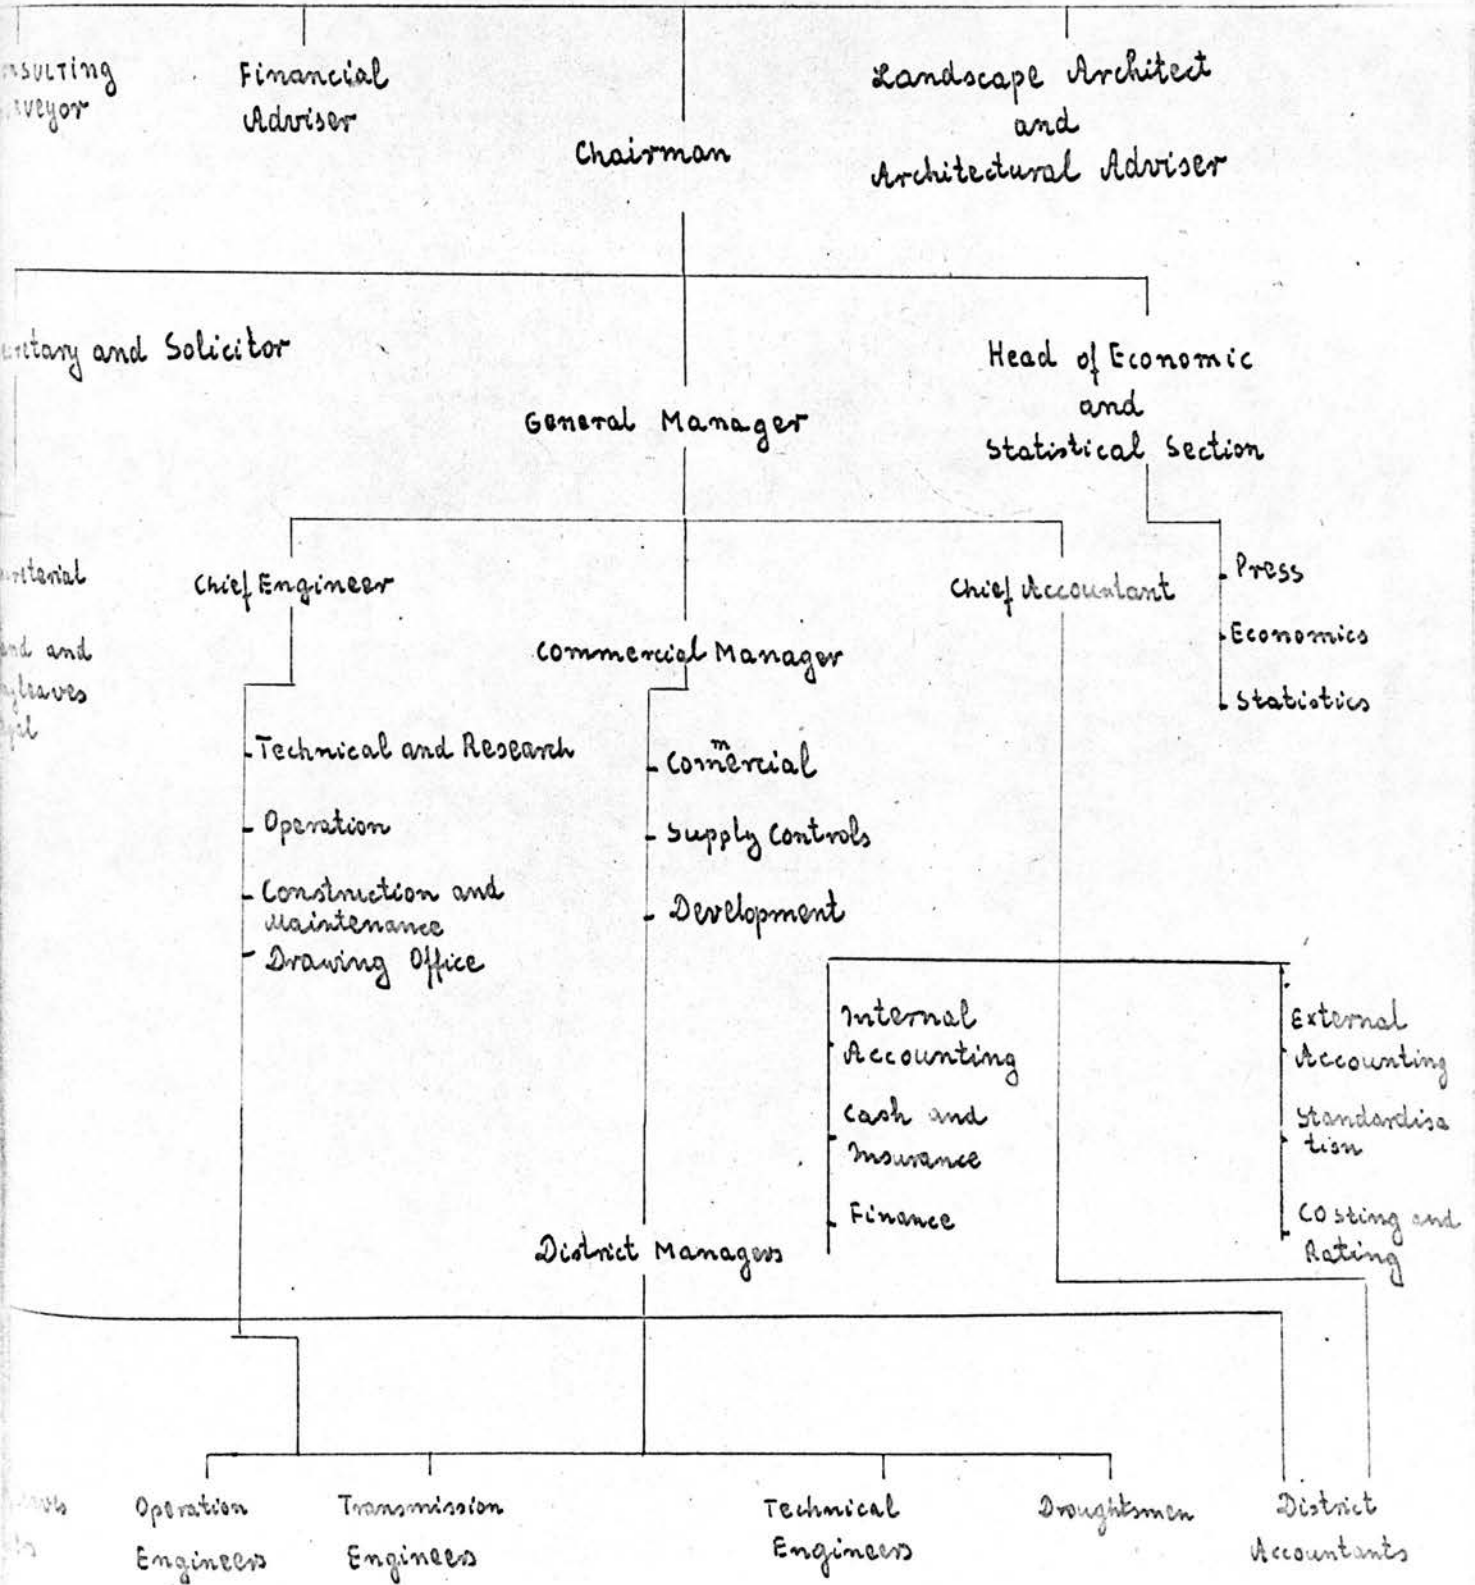 Financial
Adviser
Landscape Architect
and
Architectural Adviser
Chairman
and Solicitor
Head of Economic
and
Statistical Section
General Manager
Chief Engineer
Chief Accountant
Press
Economics
Statistics
and
Commercial Manager
Technical and Research
Operation
Construction and
Maintenance
Drawing Office
Commercial
Supply Controls
Development
Internal
Accounting
Cash and
Insurance
Finance
External
Accounting
Standardisa
tion
Costing and
Rating
District Managers
Operation
Engineers
Transmission
Engineers
Technical
Engineers
Draughtsmen
District
Accountants